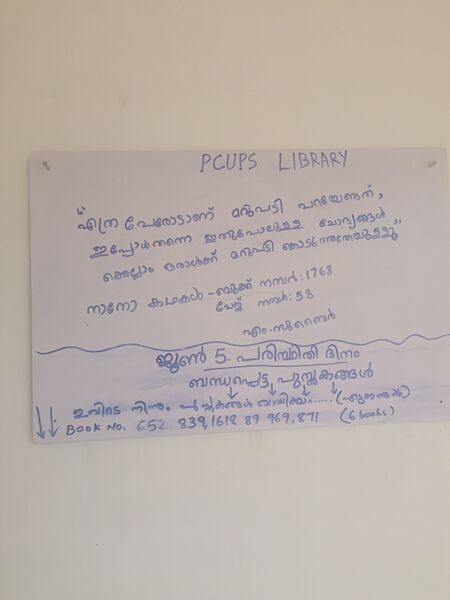 PCUPS LIBRARY
"എത്ര പേരോടാണ് മറുപടി പറയേണ്ടത്,
ഇപ്പോൾതന്നെ ഇതുപോലുള്ള ചോദ്യങ്ങൾ,,
ക്കെല്ലാം ഒരാൾക്ക് മറുപടി
നാനോ കഥകൾ - ബുക്ക് നമ്പർ: 1768
പേജ് നമ്പർ: 58
എം.സുബൈർ
ജൂൺ 5. പരിസ്ഥിതി ദിനം
ബന്ധപ്പെട്ട പുസ്തകങ്ങൾ
ഇവിടെ നിന്നും പുസ്തകങ്ങൾ വായിക്കാം.....
BOOK No: 652. 839,1618 89 969,871 (6 books)